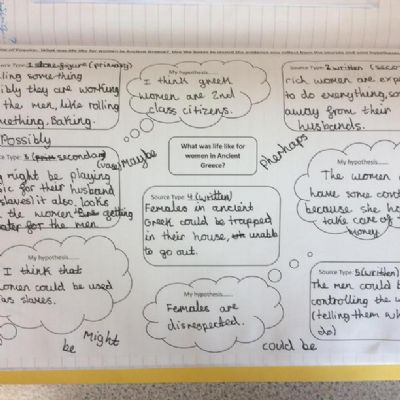 What was life like for women in Ancient Greece? Use the boxes to record the evidence you collect from the sources and your hypothesis
Source Type: 1 stone figure (primary)
ling something
ibly they are working
the men, like rolling
mething. Baking.
My hypothesis......
I think greek
women are 2nd
class citizens.
Source Type: 2 written (seco
rich women are exp
to do everything, so
away from their
husbands.
Possibly
Maybe
Pherhaps
What was life like for
women in Ancient
Greece?
Source Type: 3 secondary
(vase)
might be playing
sic for their husband
slaves) it also looks
the women getting
ater for the men
Source Type: 4 (written)
Females in ancient
Greek could be trapped
in their house, unable
to go out.
My hypothesis......
The women
have some cont
because she ha
take care of
money
My hypothesis......
I think that
omen could be used
as slaves.
My hypothesis......
Females are
disrespected.
Source Type: 5 (written)
The men could b
controlling the w
(telling them wh
do)
Might
be
could be